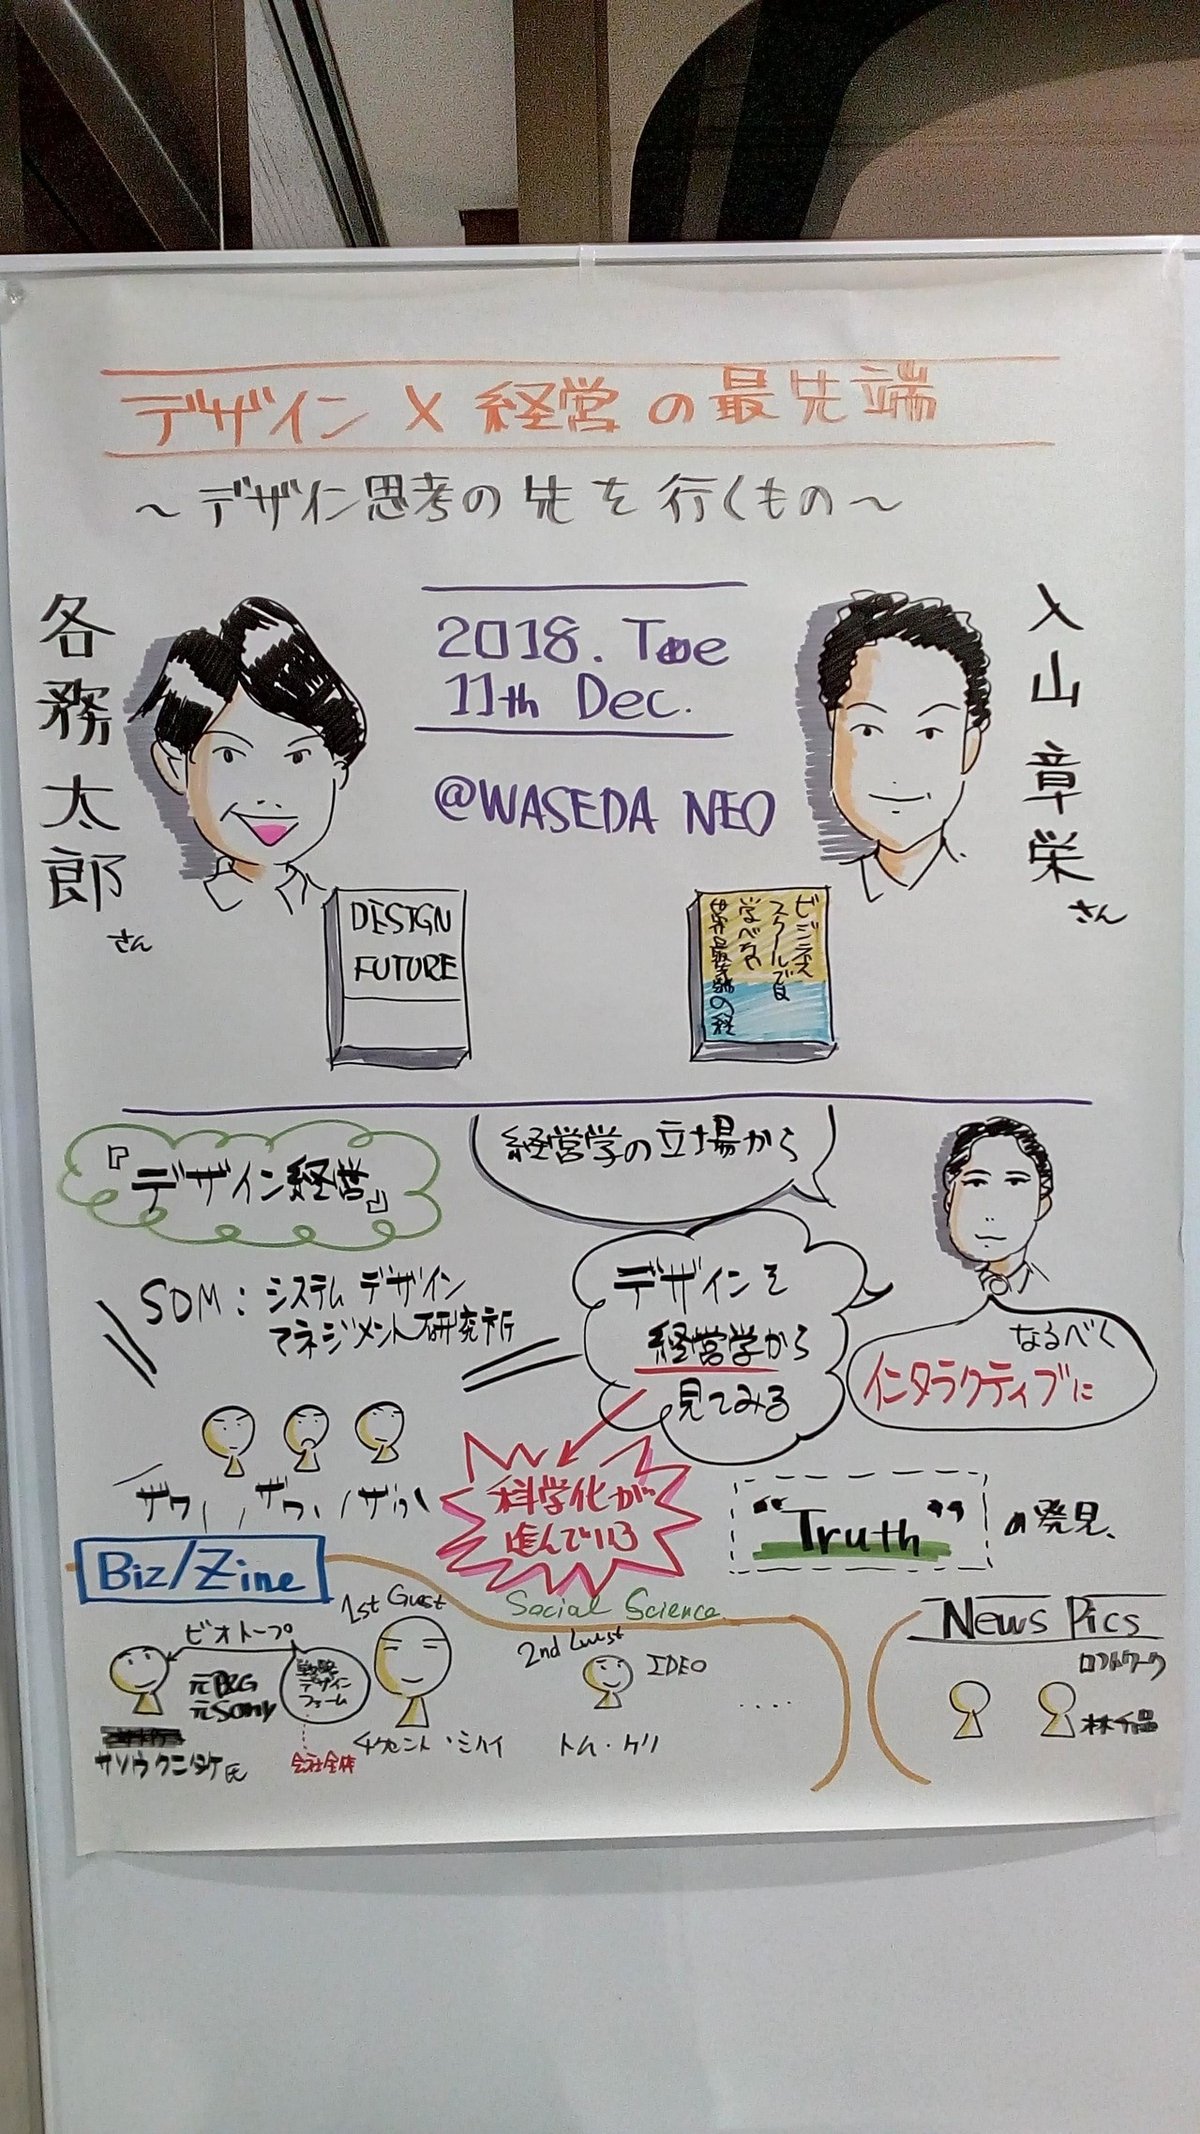 デザイン × 経営の最先端
～デザイン思考の先を行くもの～
各務太郎さん
2018. Tue
11th Dec.
@WASEDA NEO
入山章栄さん
DESIGN
FUTURE
ビジネス
スクールでは
学べない
世界最先端の経
『デザイン経営』
経営学の立場から
SDM：システム デザイン
マネジメント研究所
デザインを
経営学から
見てみる
なるべく
インタラクティブに
ザワ、ザワ、ザワ
科学化が
進んでいる
"Truth"の発見、
Biz/Zine
1st Guest
Social Science
2nd Guest
IDEO
ビオトープ
元P&G
元Sony
戦略
デザイン
ファーム
会社全体
サソウクニタケ氏
チクセント・ミハイ
トム・ケリ
....
News Pics
ロフトワーク
林千晶